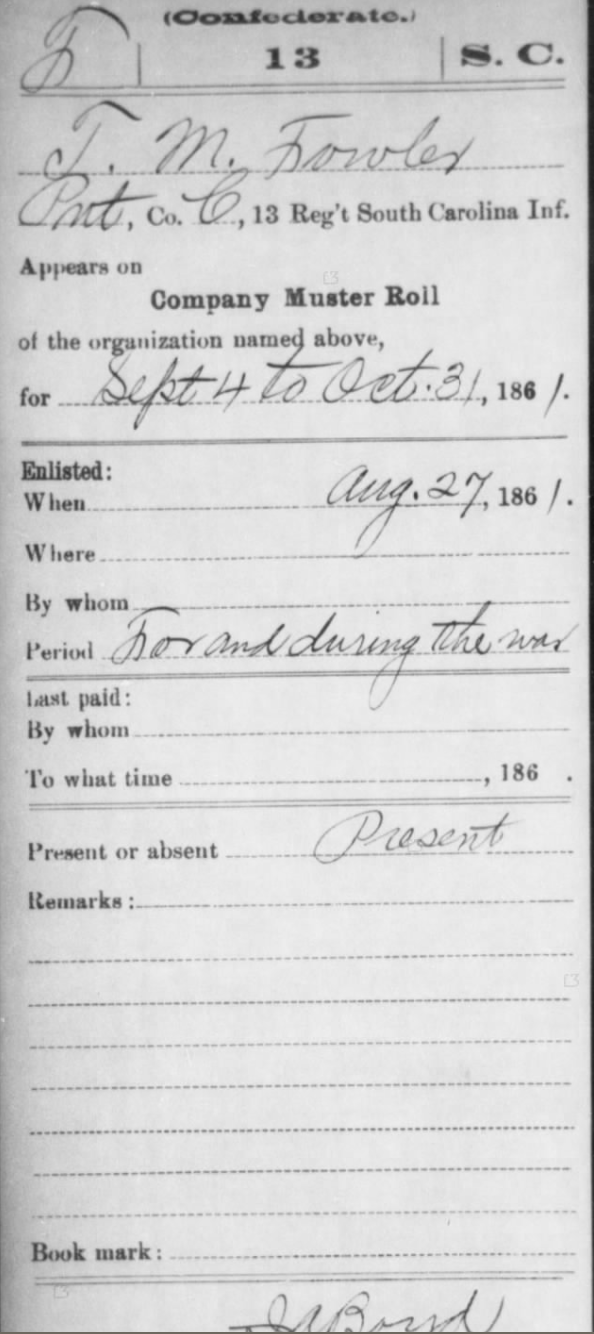 (Confederate.)
F | 13 | S. C.
T. M. Fowler
Pvt, Co. C, 13 Reg't South Carolina Inf.
Appears on
Company Muster Roll
of the organization named above,
for Sept 4 to Oct. 31, 1861.
Enlisted:
When Aug. 27, 1861.
Where
By whom
Period For and during the war
Last paid:
By whom
To what time , 186 .
Present or absent Present
Remarks:
Book mark:
JA Boyd